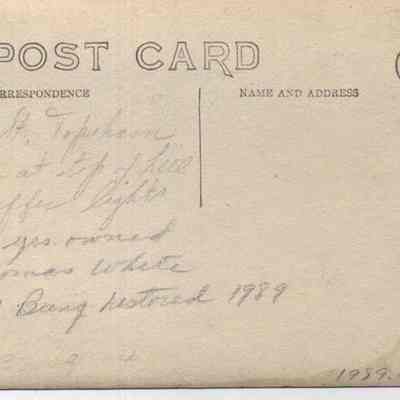 POST CARD
RRESPONDENCE
NAME AND ADDRESS
St. Topsham
at step of hill
lights
yrs. owned
omas White
Being restored 1989
1989.